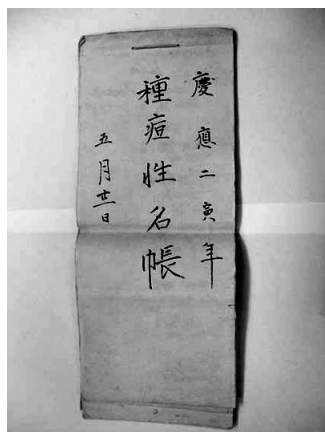 慶應二寅年
種痘性名帳
五月廿一日